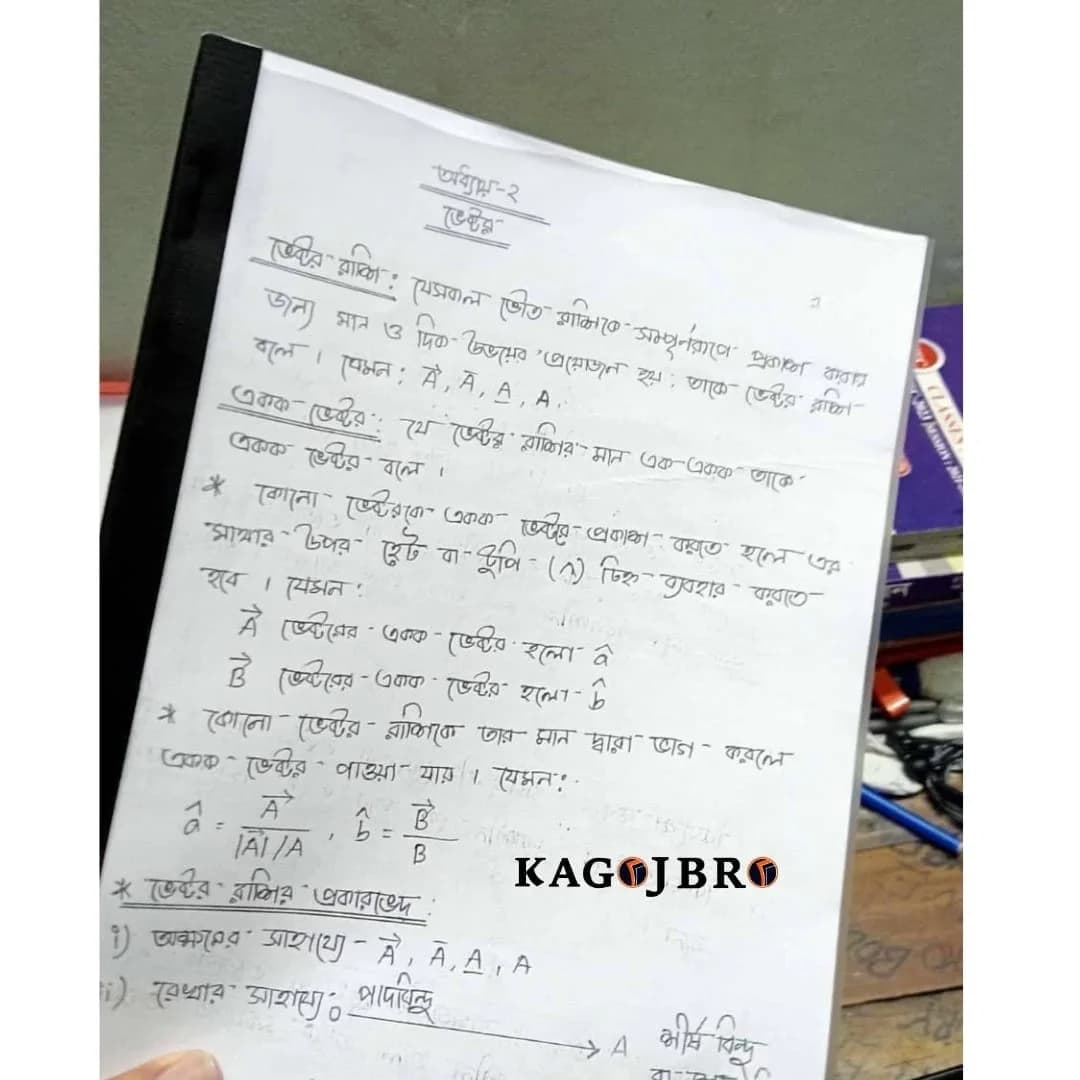 অধ্যায়-২
ভেক্টর
ভেক্টর রাশি: যেসকল ভৌত রাশিকে সম্পূর্ণরূপে প্রকাশ করার
জন্য মান ও দিক উভয়ের প্রয়োজন হয়; তাকে ভেক্টর রাশি
বলে। যেমন: A⃗, A̅, A̲, A.
একক ভেক্টর: যে ভেক্টর রাশির মান এক একক তাকে
একক ভেক্টর বলে।
* কোনো ভেক্টরকে একক ভেক্টরে প্রকাশ করতে হলে এর
মাথার উপর হেট বা টুপি (^) চিহ্ন ব্যবহার করতে
হবে। যেমন:
A⃗ ভেক্টরের একক ভেক্টর হলো â
B⃗ ভেক্টরের একক ভেক্টর হলো b̂
* কোনো ভেক্টর রাশিকে তার মান দ্বারা ভাগ করলে
একক ভেক্টর পাওয়া যায়। যেমন:
â = A⃗ / |A⃗|/A , b̂ = B⃗ / B
KAGOJBRO
* ভেক্টর রাশির প্রকারভেদ:
i) অক্ষরের সাহায্যে - A⃗, A̅, A̲, A
ii) রেখার সাহায্যে: পাদবিন্দু → A শীর্ষ বিন্দু
CLASSES